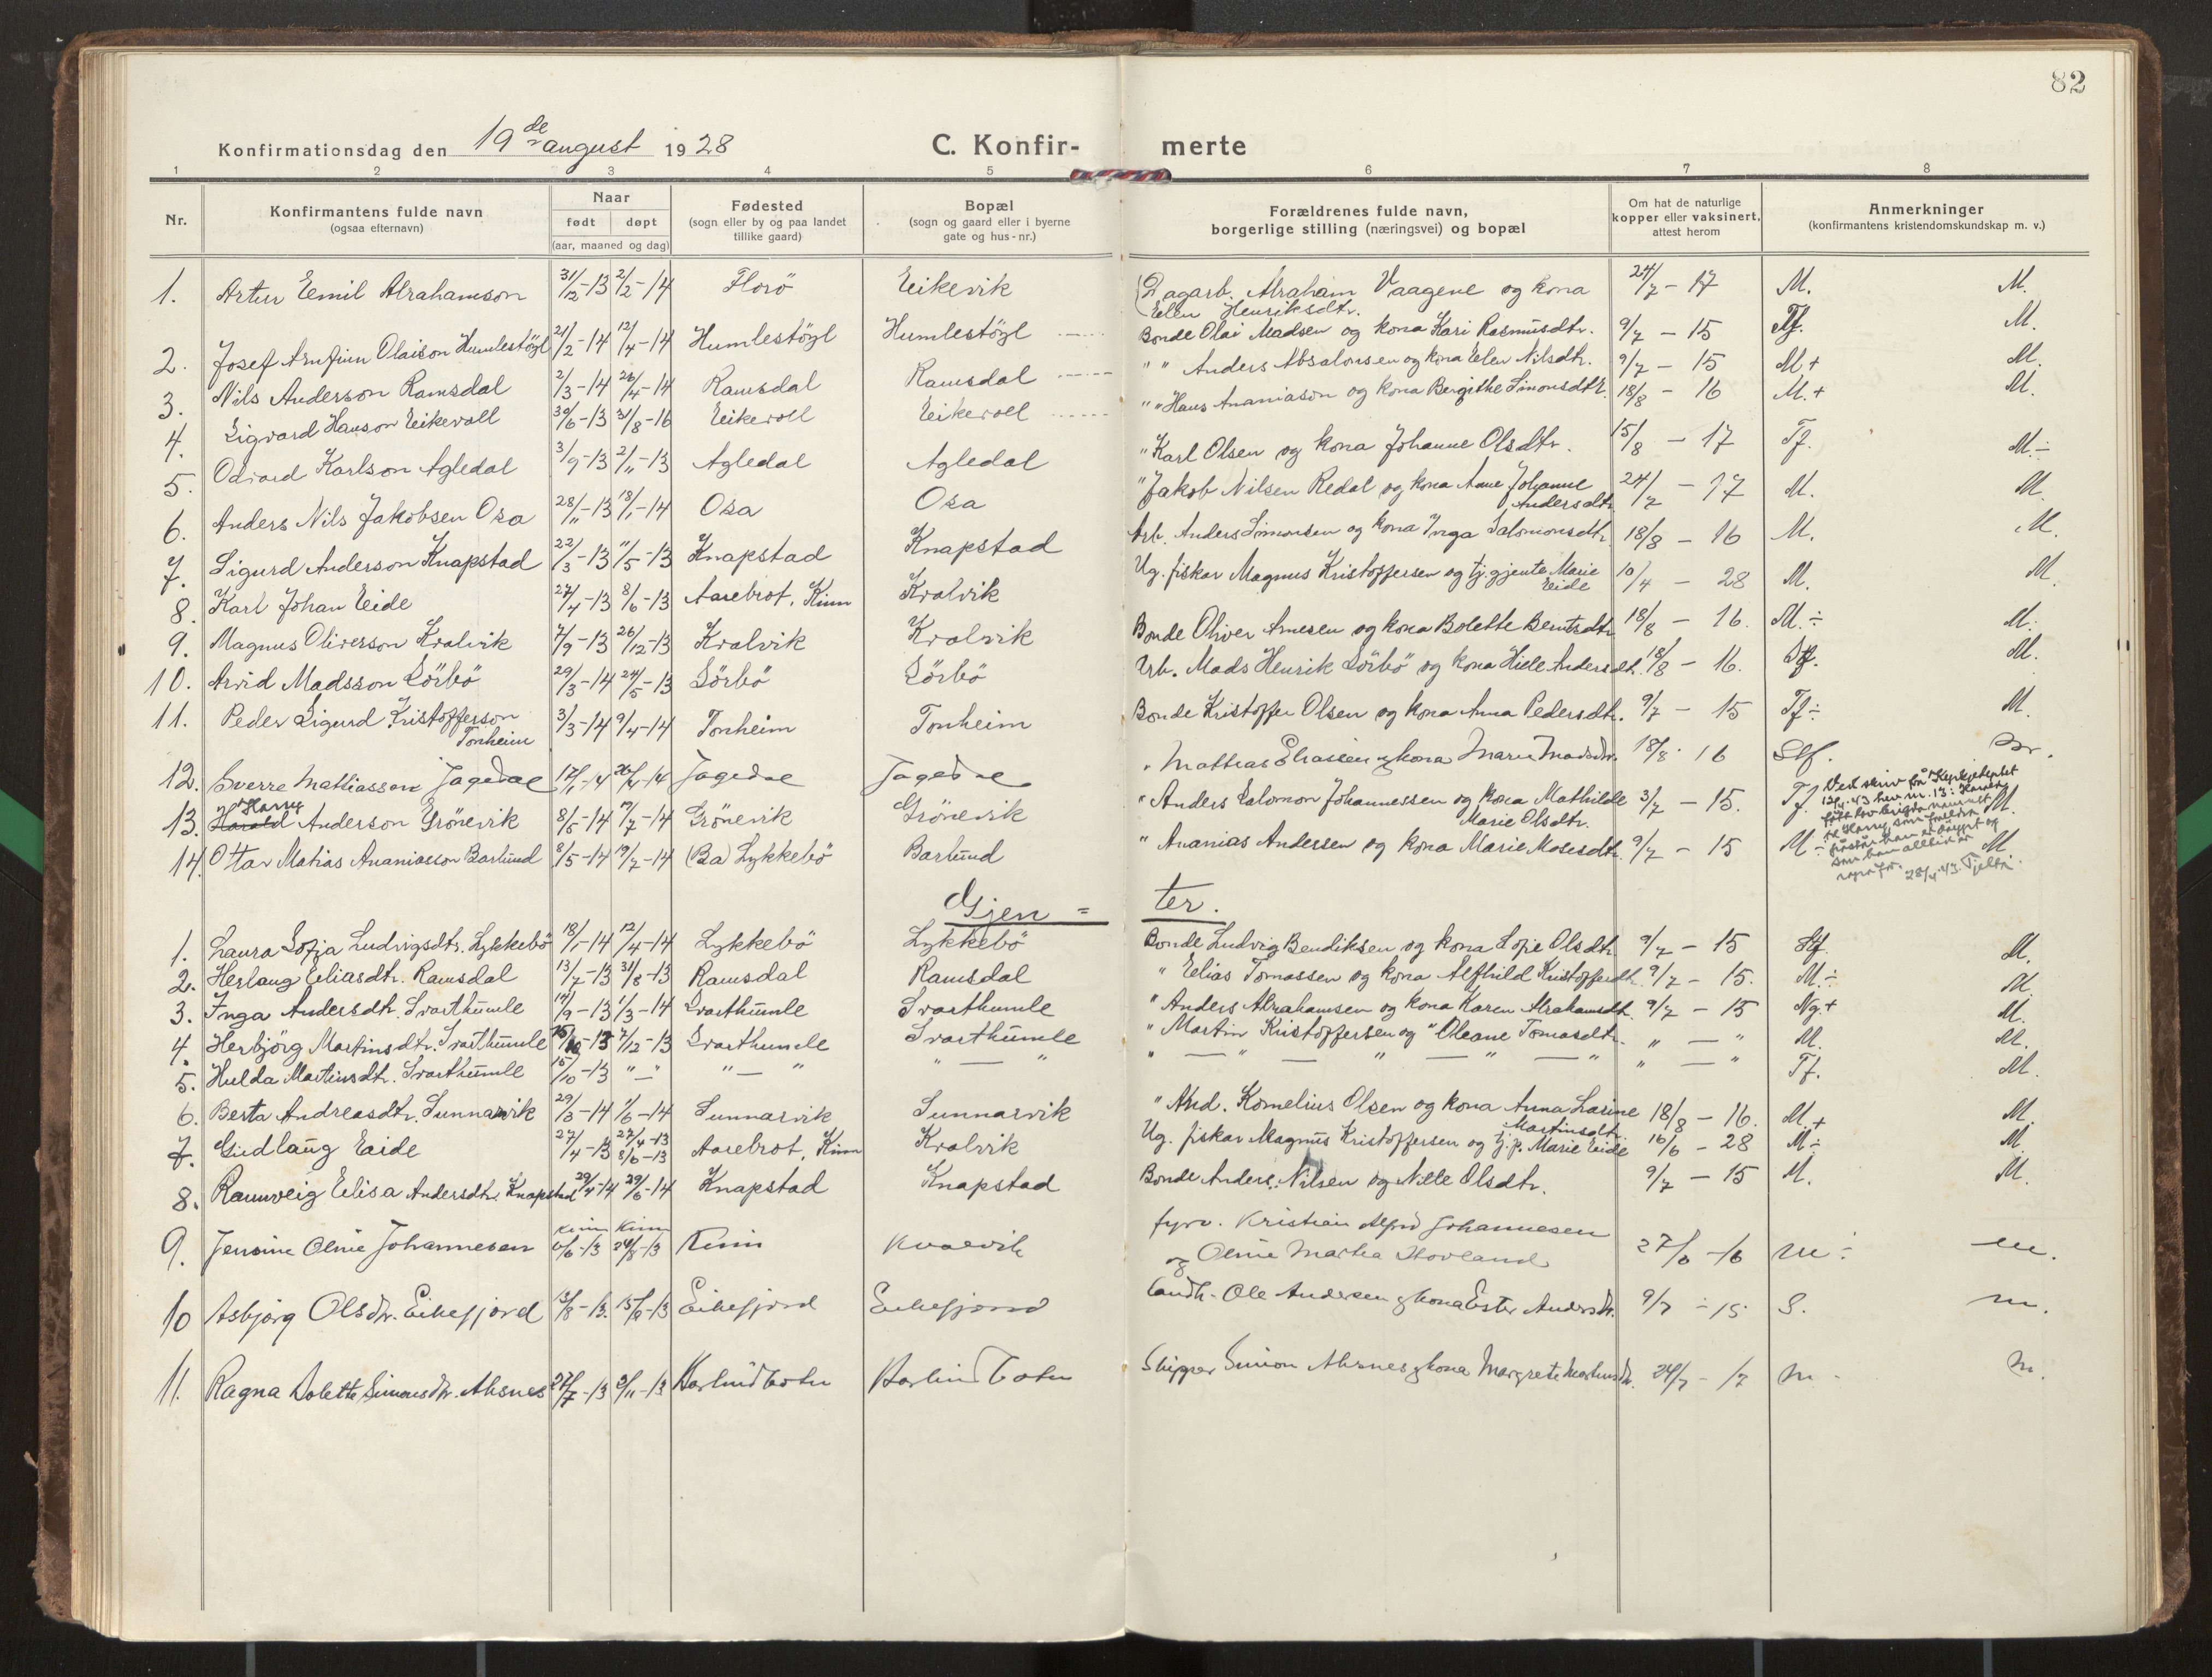 82
Konfirmationsdag den 19de august 1928
C. Konfir- merte
1 2 3 4 5 6 7 8
Nr.
Konfirmantens fulde navn
(ogsaa efternavn)
Naar
født døpt
(aar, maaned og dag)
Fødested
(sogn eller by og paa landet
tillike gaard)
Bopæl
(sogn og gaard eller i byerne
gate og hus-nr.)
Forældrenes fulde navn,
borgerlige stilling (næringsvei) og bopæl
Om hat de naturlige
kopper eller vaksinert,
attest herom
Anmerkninger
(konfirmantens kristendomskundskap m. v.)
1. Artur Emil Abrahamson 31/12-13 2/2-14 Florö Eikevik Dagarb. Abraham Vaagene og kona 24/7 - 17 M. M.
Ellen Henriksdtr.
2. Josef Arnfinn Olaison Humlestögl 21/2-14 12/4-14 Humlestögl Humlestögl Bonde Olai Madsen og kona Kari Rasmusdtr. 9/7 - 15 Tf. M.
3. Nils Anderson Ramsdal 2/3-14 26/4-14 Ramsdal Ramsdal " " Anders Absalonsen og kona Elen Nilsdtr. 9/7 - 15 M+ M.
4. Sigvard Hanson Eikevoll 30/6-13 31/8-16 Eikevoll Eikevoll " " Hans Ananiason og kona Bergithe Simonsdtr. 18/8 - 16 M.+ M.
5. Odvard Karlson Agledal 3/9-13 2/11-13 Agledal Agledal " Karl Olsen og kona Johanne Olsdtr. 15/8 - 17 Tf. M÷
6. Anders Nils Jakobsen Osa 28/11-13 18/1-14 Osa Osa " Jakob Nilsen Redal og kona Anne Johanne 24/7 - 17 M. M.
Andersdtr.
7. Sigurd Anderson Knapstad 22/3-13 11/5-13 Knapstad Knapstad Arb. Anders Simonsen og kona Inga Salomonsdtr. 18/8 - 16 M. M.
8. Karl Johan Eide 27/4-13 8/6-13 Aarebrot, Kinn Kvalvik Ug. fiskar Magnus Kristoffersen og tj. gjente Marie 10/4 - 28 M. M.
Eide
9. Magnus Oliverson Kvalvik 7/9-13 26/12-13 Kvalvik Kvalvik Bonde Oliver Arnesen og kona Bolette Berntsdtr. 18/8 - 16. M.÷ M.
10. Arvid Madsson Sörbö 29/3-14 24/5-13 Sörbö Sörbö Arb. Mads Henrik Sörbö og kona Andersdtr. 18/8 - 16. M.
11. Peder Sigurd Kristofferson 3/3-14 9/4-14 Tonheim Tonheim Bonde Kristoffer Olsen og kona Anna Pedersdtr. 9/7 - 15 Tf÷ M.
Tonheim
12. Sverre Mattiasson Jagedal Jagedal Jagedal " Mattias Eliassen og kona Marie Madsdtr. 18/8 16 Stf. M.
13. Harald Harry Anderson Grönevik 8/5-14 19/7-14 Grönevik Grönevik " Anders Salomon Johannessen og kona Mathilde 3/7 - 15. Tf. M.
Marie Olsdtr.
14. Ottar Matias Ananiasson Barlund 8/5-14 19/7-14 (Ba) Lykkebö Barlund " Ananias Andersen og kona Marie Mosesdtr. 9/7 - 15 M÷ M
28/4.43.
Gjen = ter.
1. Laura Sofia Ludvigsdtr. Lykkebö 18/1-14 12/4-14 Lykkebö Lykkebö Bonde Ludvig Bendiksen og kona Sofie Olsdtr. 9/7 - 15 Stf. M.
2. Herlaug Eliasdtr. Ramsdal 13/7-13 31/8-13 Ramsdal Ramsdal " Elias Tomassen og kona Alfhild Kristoffersdtr. 9/7 - 15. M.÷ M.
3. Inga Andersdtr. Svarthumle 19/9-13 1/3-14 Svarthumle Svarthumle " Anders Abrahamsen og kona Karen Abrahamsdtr. 9/7 - 15 Ng+ M.
4. Herbjörg Martinsdtr. Svarthumle 15/10-13 7/12-13 Svarthumle Svarthumle " Martin Kristoffersen og " Oleane Tomasdtr. " — " M. M.
5. Hulda Martinsdtr. Svarthumle 15/10-13 " — " " — " " — " " — " " — " — " " — " Tf. M.
6. Berta Andreasdtr. Sunnarvik 29/3-14 1/6-14 Sunnarvik Sunnarvik " And. Kornelius Olsen og kona Anna Larine 18/8 - 16. M.+ M.
Martinsdtr.
7. Gudlaug Eide 27/4-13 27/4-13 8/6-13 Aarebrot, Kinn Kvalvik Ug. fiskar Magnus Kristoffersen og tj.p. Marie Eide 16/6 - 28 M÷ M.
8. Rannveig Elisa Andersdtr. Knapstad 29/4-14 29/6-14 Knapstad Knapstad Bonde Anders Nilsen og Nille Olsdtr. 9/7 - 15 M. M.
Kinn Kinn
9. Jensine Oline Johannesen 6/6-13 24/8-13 Kinn Kvalvik fyrv. Kristian Alfred Johannesen 27/8 -16 M÷ M.
og Oline Martha Hovland
10 Asbjørg Olsdtr. Eikefjord 13/8-13. 15/9-13 Eikefjord Eikefjord Landh. Ole Andersen og kona Ester Andersdtr. 9/7 - 15 S. M.
11. Ragna Bolette Simonsdtr. Alsnes 27/7-13 2/11-13 Barlindbotn Barlindbotn Skipper Simon Alsnes og kona Margrete Martinsdtr. 24/7 - 17 M. M.